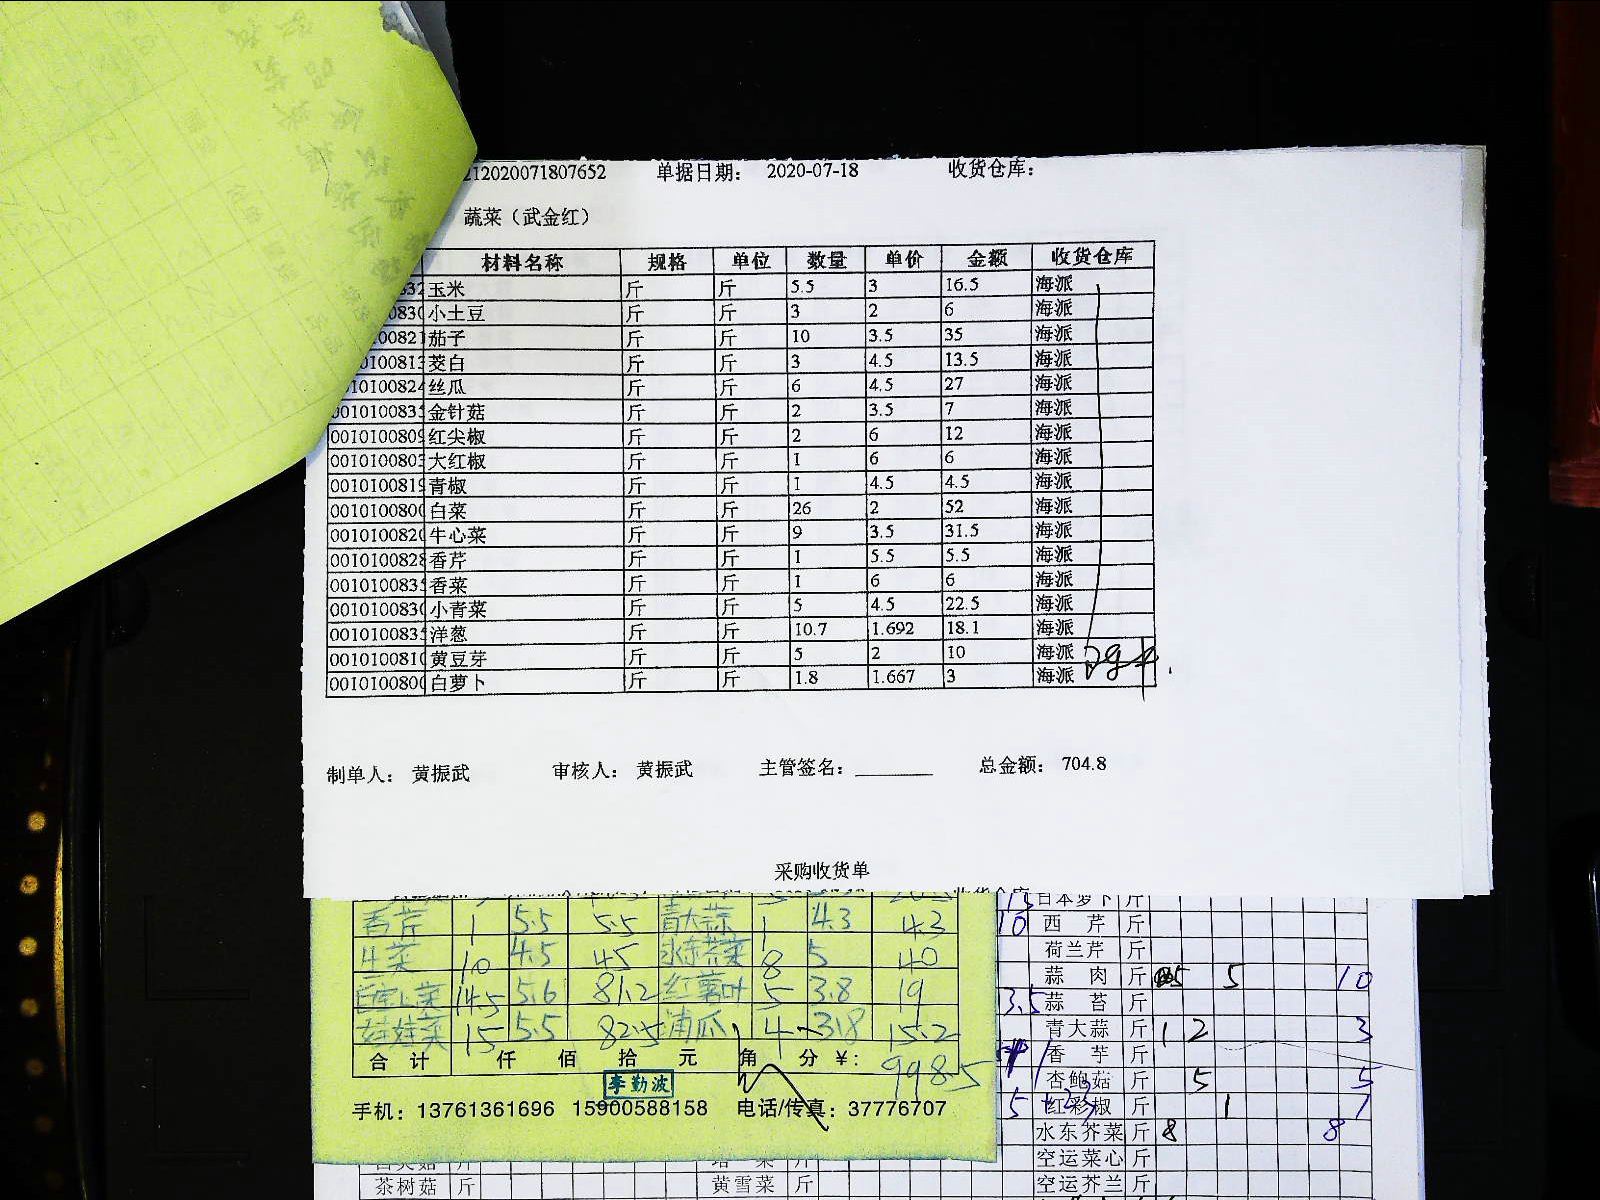 212020071807652 单据日期： 2020-07-18 收货仓库：
蔬菜（武金红）
材料名称 规格 单位 数量 单价 金额 收货仓库
玉米 斤 斤 5.5 3 16.5 海派
小土豆 斤 斤 3 2 6 海派
茄子 斤 斤 10 3.5 35 海派
茭白 斤 斤 3 4.5 13.5 海派
0010100824 丝瓜 斤 斤 6 4.5 27 海派
0010100835 金针菇 斤 斤 2 3.5 7 海派
0010100809 红尖椒 斤 斤 2 6 12 海派
0010100803 大红椒 斤 斤 1 6 6 海派
0010100819 青椒 斤 斤 1 4.5 4.5 海派
0010100800 白菜 斤 斤 26 2 52 海派
0010100820 牛心菜 斤 斤 9 3.5 31.5 海派
0010100828 香芹 斤 斤 1 5.5 5.5 海派
0010100835 香菜 斤 斤 1 6 6 海派
0010100830 小青菜 斤 斤 5 4.5 22.5 海派
0010100835 洋葱 斤 斤 10.7 1.692 18.1 海派
0010100810 黄豆芽 斤 斤 5 2 10 海派
0010100800 白萝卜 斤 斤 1.8 1.667 3 海派
制单人： 黄振武 审核人： 黄振武 主管签名： 总金额： 704.8
采购收货单
香芹 1 5.5 5.5 青大蒜 1 4.3 4.3
生菜 10 4.5 45 水东芥菜 8 5 40
14.5 5.6 81.2 红薯叶 5 3.8 19
娃娃菜 15 5.5 82.5 浦瓜 4 3.8 15.2
合计 仟 佰 拾 元 角 分 ¥： 998.5
李勤波
手机：13761361696 15900588158 电话/传真：37776707
15 日本萝卜 斤
10 西芹 斤
荷兰芹 斤
蒜肉 斤 5 5 10
3.5 蒜苔 斤
青大蒜 斤 1 2 3
香芋 斤
杏鲍菇 斤 5 5
5 红彩椒 斤 1 1
水东芥菜 斤 8 8
空运菜心 斤
茶树菇 斤 黄雪菜 斤 空运芥兰 斤